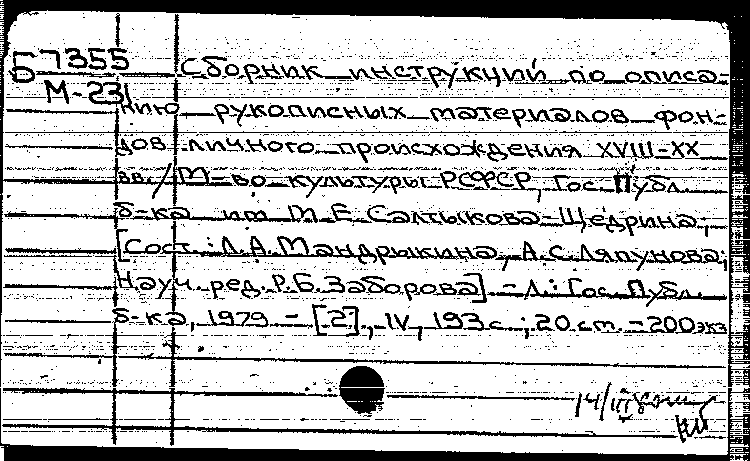 Б7355
М-231
Сборник инструкций по описа-
нию рукописных материалов фон-
дов личного происхождения XVIII-XX
вв. / М-во культуры РСФСР, Гос. Публ.
б-ка им М. Е. Салтыкова-Щедрина;
[Сост.: Л. А. Мандрыкина, А. С. Ляпунова;
Науч. ред. Р. Б. Заборова] - Л.: Гос. Публ.
б-ка, 1979 - [2], IV, 193 с.; 20 см. - 200 экз
14/III